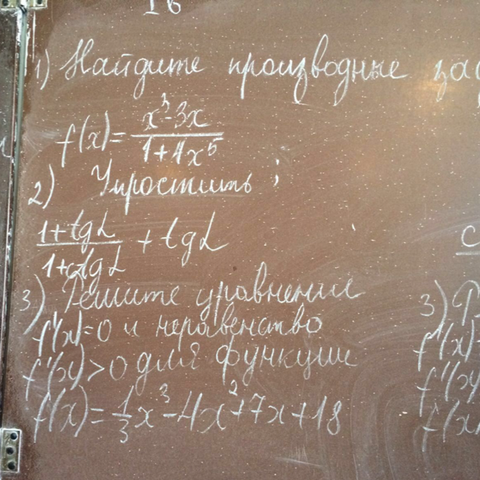 1) Найдите производные
f(x)= (x³-3x)/(1+4x⁵)
2) Упростить:
(1+tgα)/(1+ctgα) + tgα
3) Решите уравнении
f'(x)=0 и неравенство
f'(x)>0 для функции
f(x)=1/3x³-4x²+7x+18
3)
f'(x)
f'(x)
f(x)